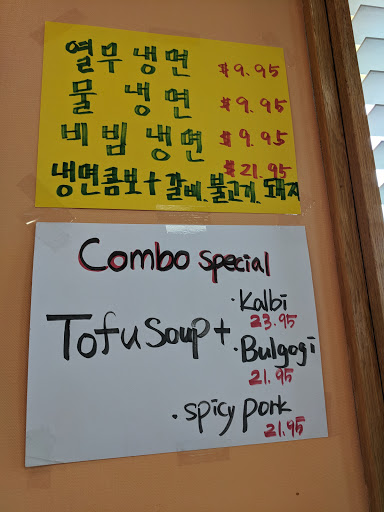 열무냉면 $9.95
물 냉면 $9.95
비빔냉면 $9.95
$21.95
냉면콤보+갈비.불고기.돼지
Combo special
Tofu soup +
·Kalbi
23.95
·Bulgogi
21.95
·spicy pork
21.95